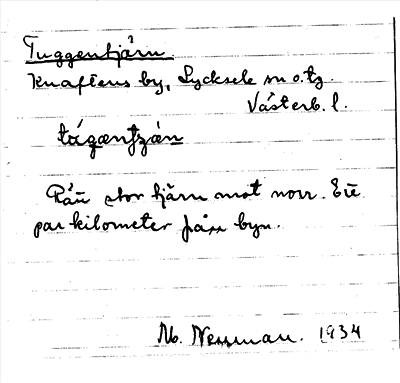 Tuggentjärn.
Knaftens by, Lycksele sn o. tg.
Västerb. l.
stor tjärn mot norr. Ett
par kilometer från byn.
M. Nessman. 1934